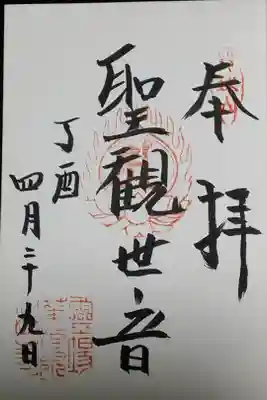 奉拝
聖観世音
丁酉
四月二十九日